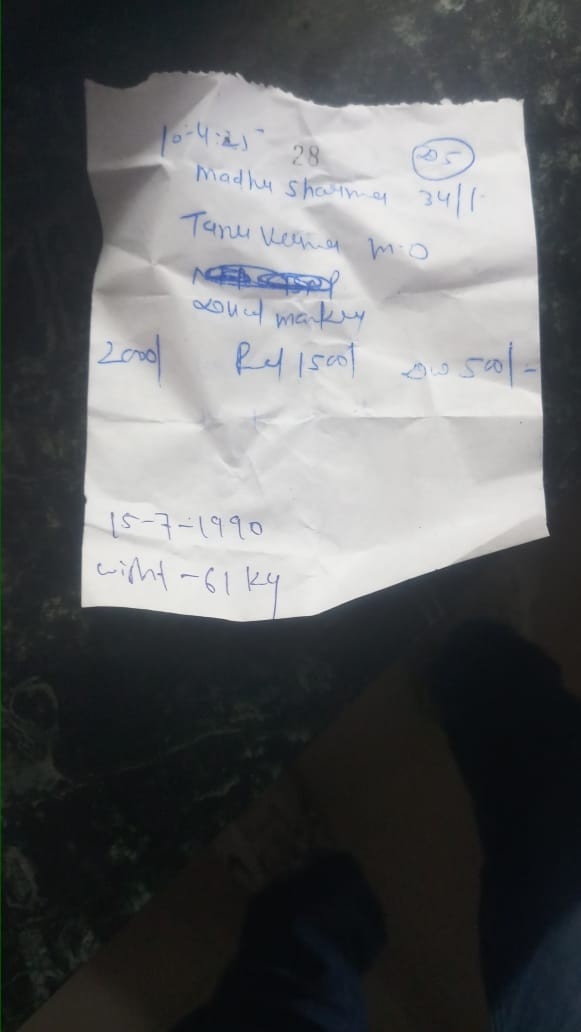 10-4-25 28 D5
Madhu Sharma 34/1
Tanu Verma M.O
marker
2000/ Rec 1500/ Due 500/-
15-7-1990
wight - 61 kg